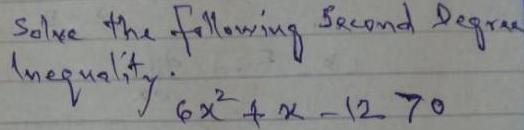 Solve the following Second Degree
Inequality.
6x² + x - 12 > 0